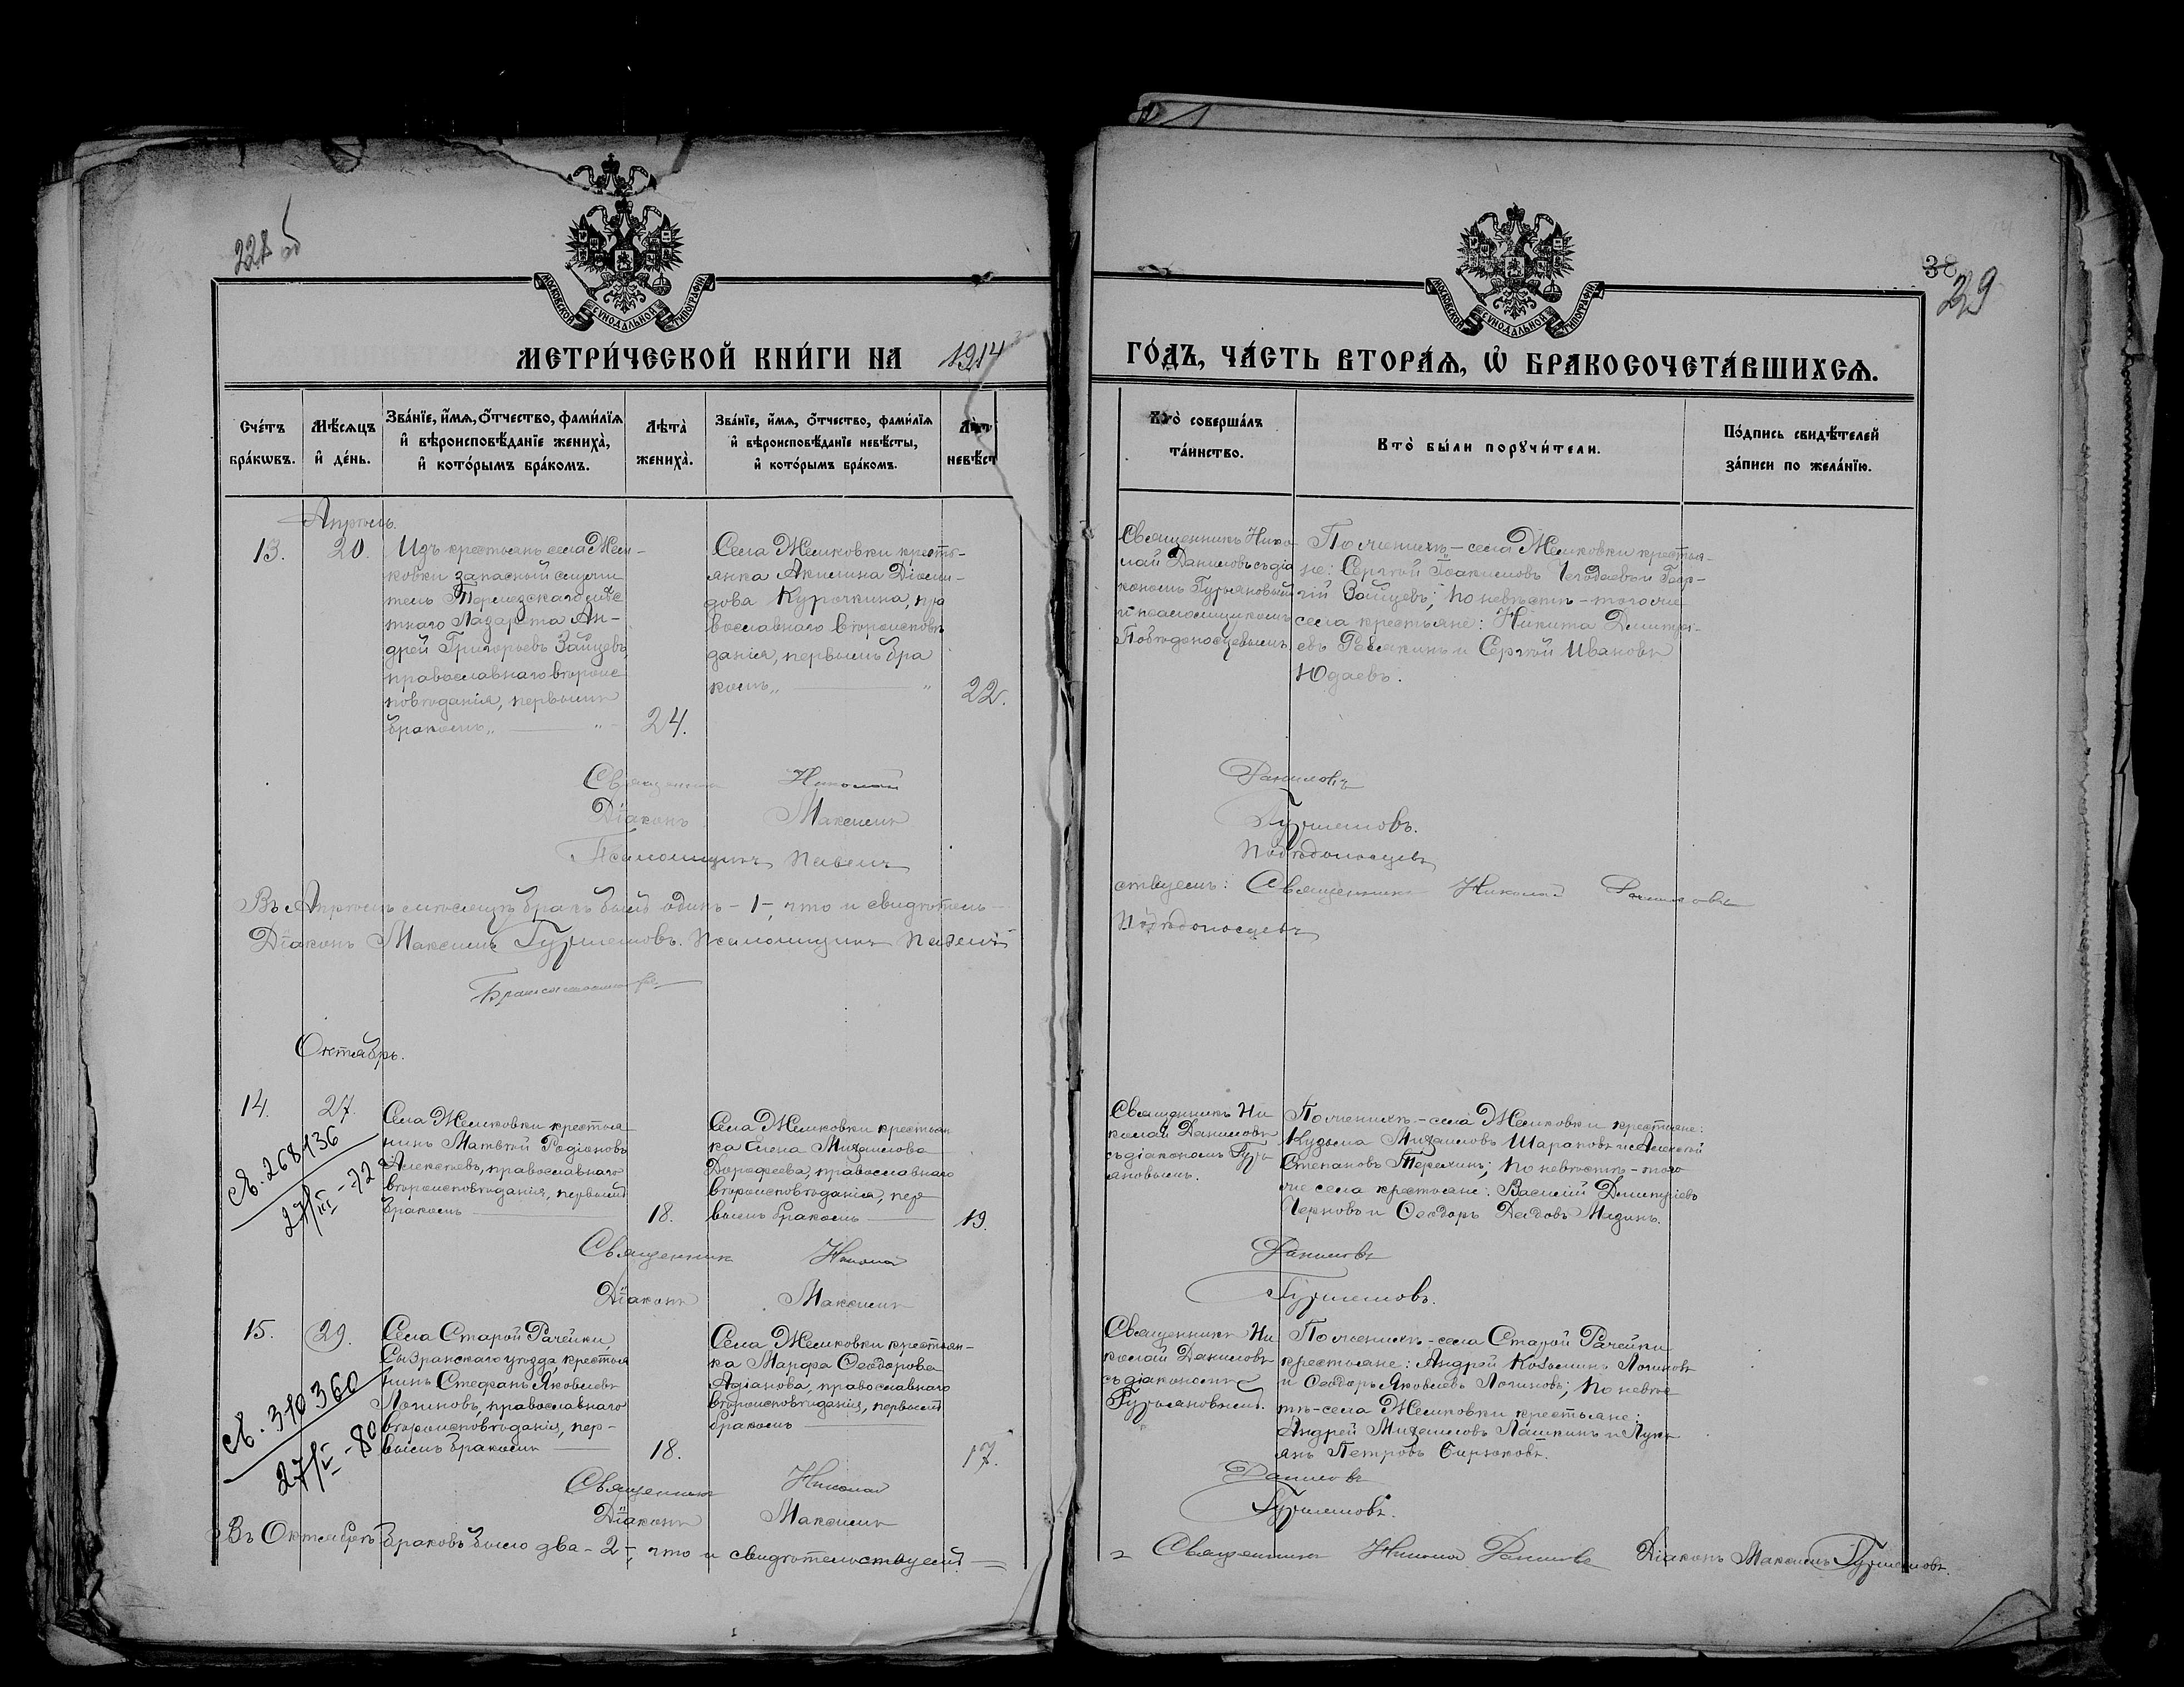 228 об
МОСКОВСКОЙ СУНОДАЛЬНОЙ ТИПОГРАФІИ
МЕТРИ́ЧЕСКОЙ КНИ́ГИ НА 1914
Сче́тъ бра́кωвъ.
Мѣ́сѧцъ и҆ де́нь.
Зва́нїе, и҆́мѧ, ѻ҆́тчество, фами́лїѧ и҆ вѣроисповѣ́данїе жениха̀, и҆ кото́рымъ бра́комъ.
Лѣ́та̀ жениха̀.
Зва́нїе, и҆́мѧ, ѻ҆́тчество, фами́лїѧ и҆ вѣроисповѣ́данїе невѣ́сты, и҆ кото́рымъ бра́комъ.
Лѣт невѣ́ст
Апрѣль.
13.
20.
Изъ крестьянъ села Жем-
ковки запасный служи
тель
тнаго Лазарета Ан-
дрей Григорьевъ Зайцевъ
православнаго вѣроис
повѣданія, первымъ
бракомъ „ — „
24.
Села Жемковки кресть-
янка Акилина Діоми-
дова Курочкина, пра
вославнаго вѣроисповѣ
данія, первымъ бра
комъ „ — „
22.
Священникъ Николай
Діаконъ Максимъ
Псаломщикъ Павелъ
Въ Апрѣлѣ мѣсяцѣ бракъ былъ одинъ - 1 -, что и свидѣтель-
Діаконъ Максимъ Гурьяновъ. Псаломщикъ Павелъ
Октябрь.
14.
27.
Села Жемковки крестья
нинъ Матвѣй Родіоновъ
Алексѣевъ, православнаго
вѣроисповѣданія, первымъ
бракомъ —
18.
Села Жемковки крестьян
ка Елена Михаилова
Дорофеева, православнаго
вѣроисповѣданія, пер
вымъ бракомъ —
19.
св. 268436
27/III - 72
Священникъ Николай
Діаконъ Максимъ
15.
29.
Села Старой Рачейки,
Сызранскаго уѣзда, крестья
нинъ Стефанъ Яковлевъ
Логиновъ, православнаго
вѣроисповѣданія, пер-
вымъ бракомъ —
18.
Села Жемковки крестьян-
ка Марфа Ѳеодорова
Адіанова, православнаго
вѣроисповѣданія, первымъ
бракомъ —
17.
св. 310360
27/V - 80
Священникъ Николай
Діаконъ Максимъ
Въ Октябрѣ браковъ было два - 2 -, что и свидѣтельствуемъ: —
38
39
МОСКОВСКОЙ СУНОДАЛЬНОЙ ТИПОГРАФІИ
ГО́ДЪ, ЧА́СТЬ ВТОРА́Ѧ, Ѡ҆ БРАКОСОЧЕТА́ВШИХСѦ.
Кто̀ соверша́лъ та́инство.
Кто̀ бы́ли порꙋчи́тели.
По́дпись свидѣ́телей за́писи по жела́нїю.
Священникъ Нико
лай Даниловъ съ діа
кономъ Гурьяновымъ
и псаломщикомъ
Побѣдоносцевымъ.
По женихѣ - села Жемковки крестья-
не: Сергѣй Іоакимовъ Чегодаевъ и Геор-
гій Зайцевъ; по невѣстѣ - того же
села крестьяне: Никита Димитрі-
евъ и Сергѣй Ивановъ
Юдаевъ.
Даниловъ
Гурьяновъ.
Побѣдоносцевъ
ствуемъ: Священникъ Николай Даниловъ
Побѣдоносцевъ
Священникъ Ни
колай Даниловъ
съ діакономъ Гурь
яновымъ.
По женихѣ - села Жемковки крестьяне:
Кузьма Михаиловъ Шараповъ и Алексѣй
Степановъ Терехинъ; по невѣстѣ - того
же села крестьяне: Василій Димитріевъ
Черновъ и Ѳеодоръ
Даниловъ
Гурьяновъ.
Священникъ Ни
колай Даниловъ
съ діакономъ
Гурьяновымъ.
По женихѣ - села Старой Рачейки
крестьяне: Андрей Козьминъ Логиновъ
и Ѳеодоръ Яковлевъ Логиновъ; по невѣс
тѣ - села Жемковки крестьяне:
Андрей Михаиловъ Лашкинъ и Лукі
янъ Петровъ Бирюковъ.
Даниловъ
Гурьяновъ.
Священникъ Николай Даниловъ Діаконъ Максимъ Гурьяновъ.